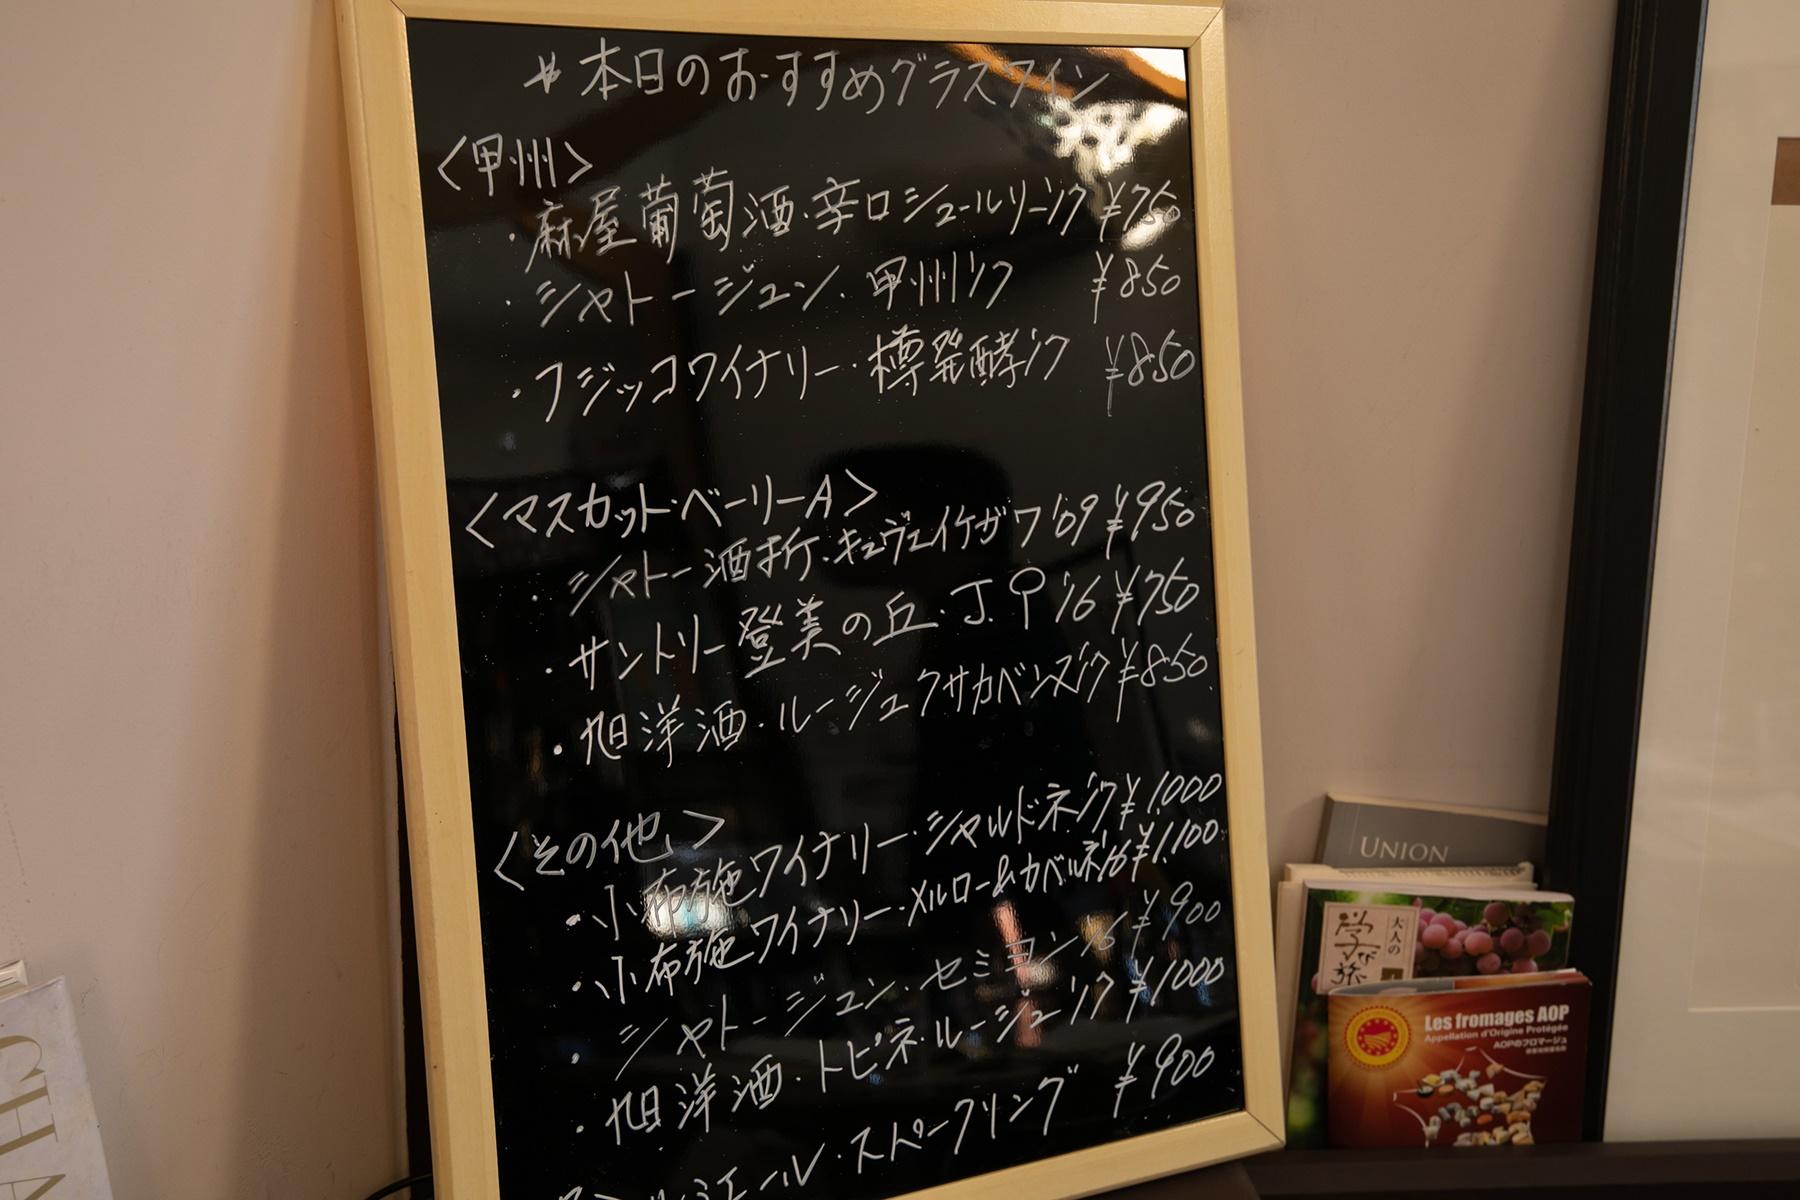 本日のおすすめグラスワイン
<甲州>
・麻屋葡萄酒・辛口シュールリー'17 ¥750
・シャトージュン・甲州'17 ¥850
・フジッコワイナリー・樽発酵'17 ¥850
<マスカット・ベーリーA>
・シャトー酒折・キュヴェイケガワ'09 ¥950
・サントリー登美の丘・J.O '16 ¥750
・旭洋酒・ルージュクサカベンヌ'17 ¥850
<その他>
・小布施ワイナリー・シャルドネ'17 ¥1,000
・小布施ワイナリー・メルロー&カベルネ'16 ¥1,100
・シャトージュン・セミヨン'16 ¥900
・旭洋酒・トピネルージュ'17 ¥1000
ル・スパークリング ¥900
UNION
大人の
学び旅
Les fromages AOP
Appellation d'Origine Protégée
AOPのフロマージュ
CHA